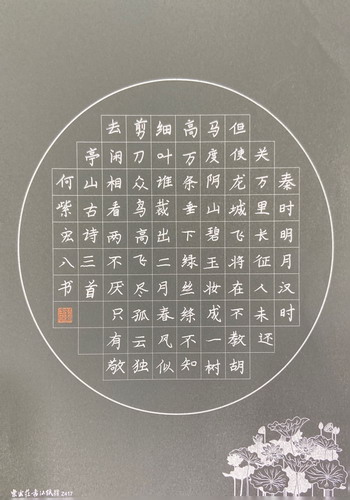 秦时明月汉时
关万里长征人未还
但使龙城飞将在不教胡
马度阴山碧玉妆成一树
高万条垂下绿丝绦不知
细叶谁裁出二月春风似
剪刀众鸟高飞尽孤云独
去闲相看两不厌只有敬
亭山古诗三首
何紫宏八书